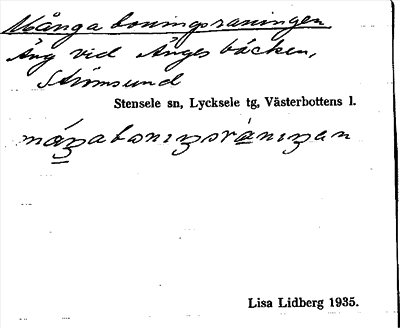 Många boningsraningen
Äng vid Ängesbäcken,
Strömsund
Stensele sn, Lycksele tg, Västerbottens l.
Lisa Lidberg 1935.